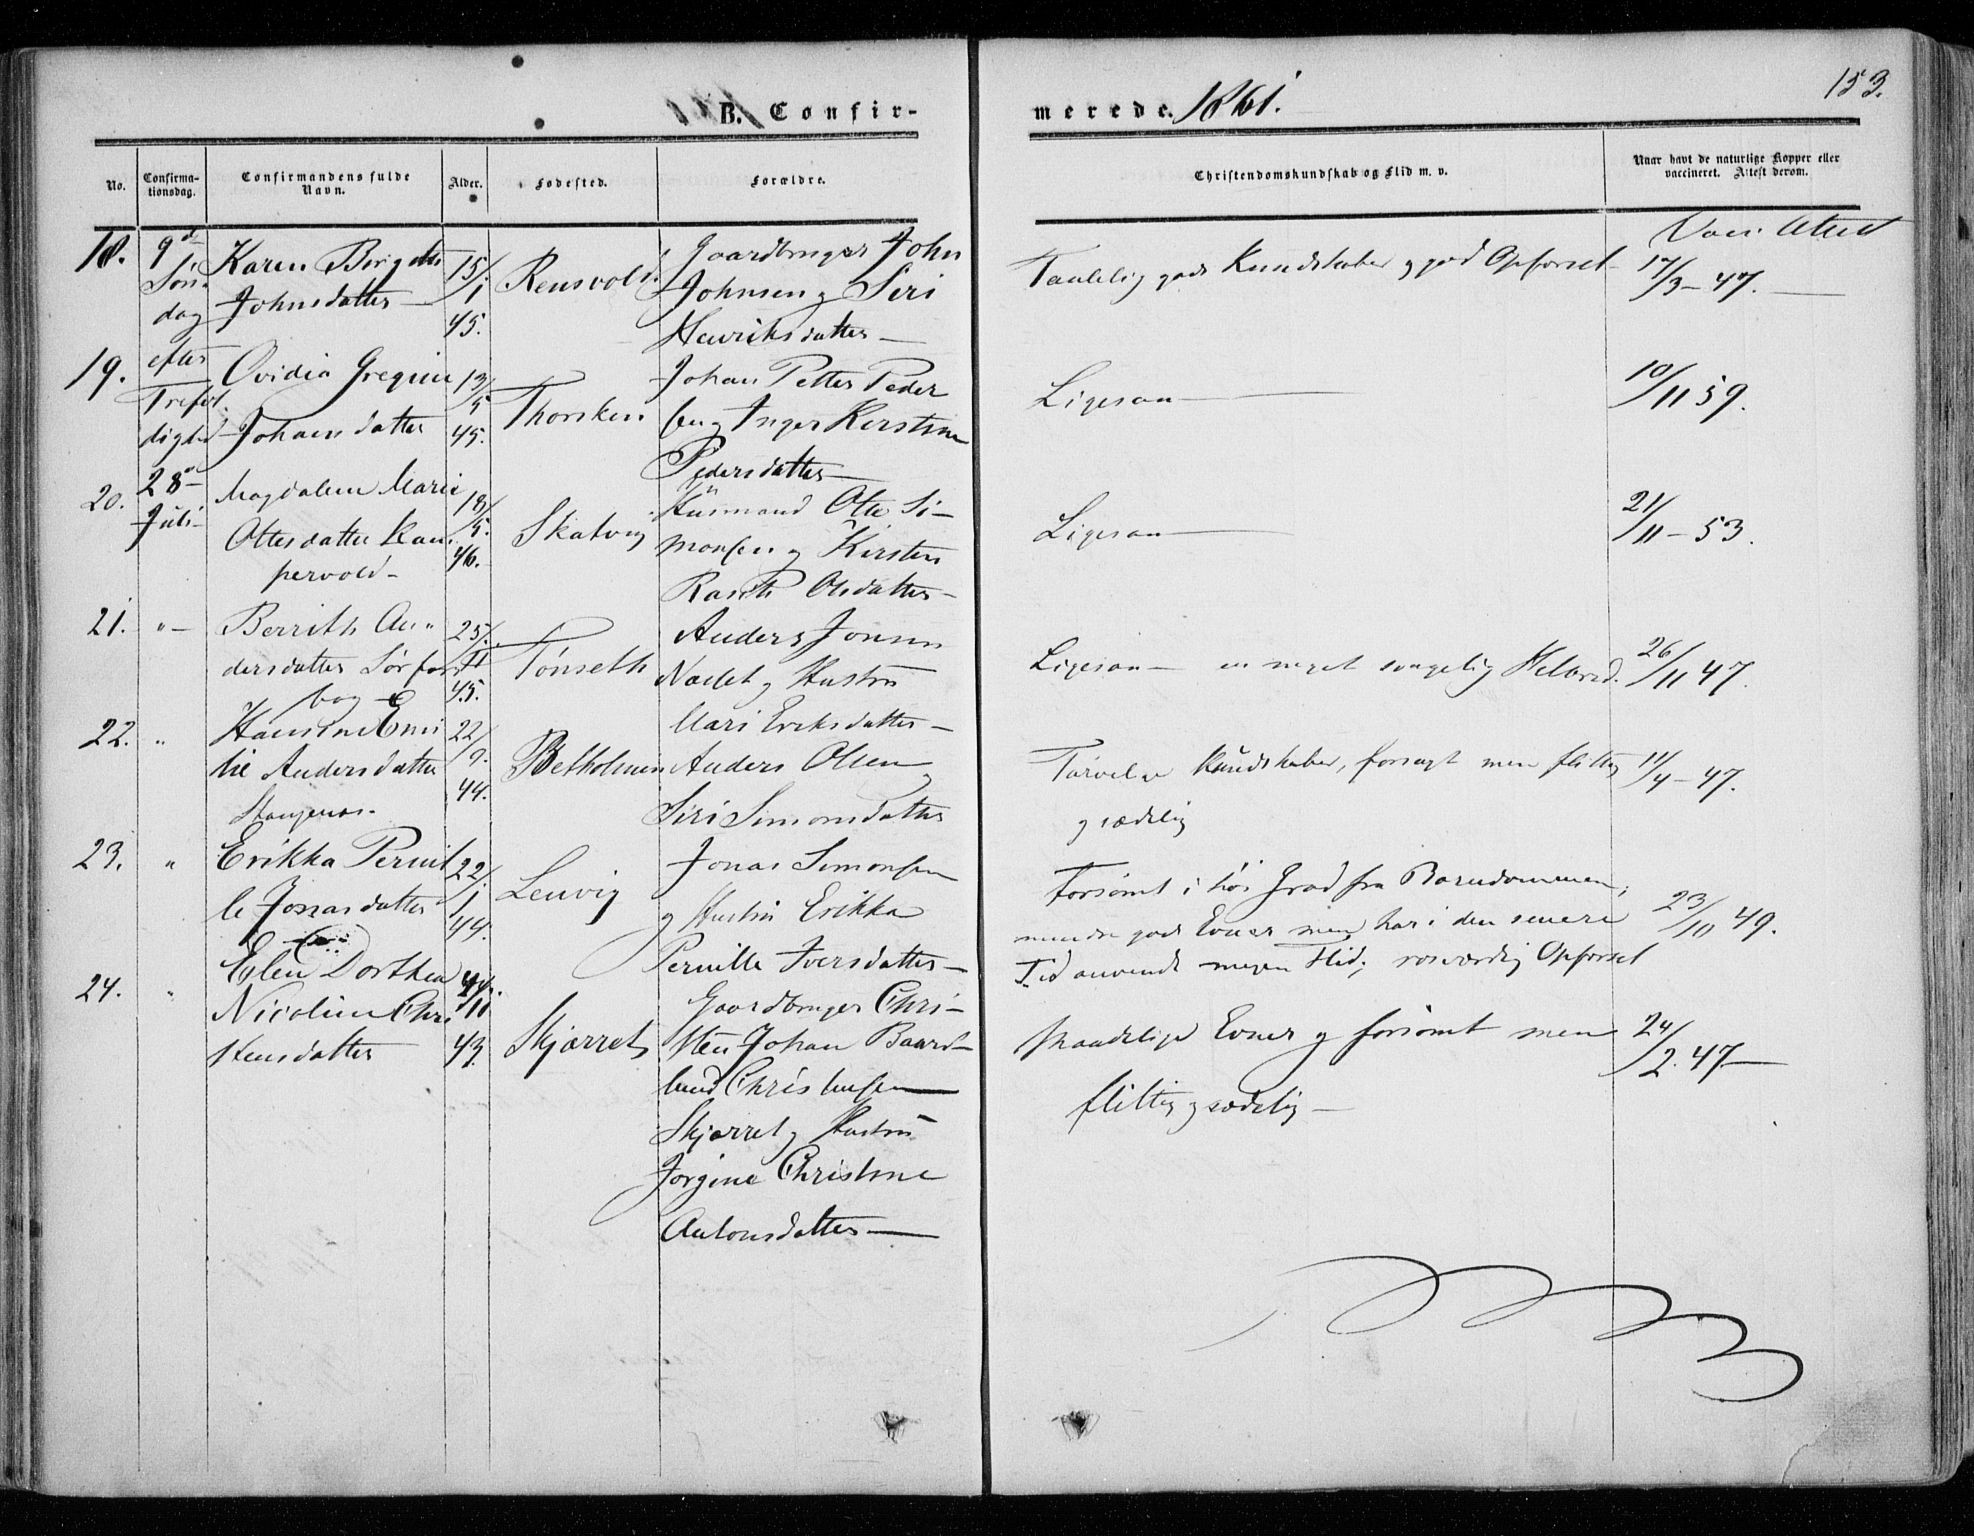 153.
B. Confir-
merede. 1861.
No.
Confirma-
tionsdag.
Confirmandens fulde
Navn.
Alder.
Fødested.
Forældre.
Christendomskundskab og Flid m. v.
Naar havt de naturlige Kopper eller
vaccineret. Attest derom.
Vacc. Attest
18.
9de
Søn-
dag
efter
Trefol
dighed
28de
Juli
Karen Birgitte
Johnsdatter
15/1
45.
Rensvold.
Gaardbruger John
Johnsen og Siri
Henriksdatter
Taalelig gode Kundskaber og god Opførsel
17/3 - 47.
19.
Ovidia Gregine
Johansdatter
13/5
45.
Thorsken
Johan Petter Peder
sen og Inger Kirstine
Pedersdatter
Ligesaa
10/11 59.
20.
Magdalene Marie
Ottesdatter Kam
pervold
18/5.
46.
Skatvig
Husmand Otte Si-
monsen og Kirsten
Olsdatter
Ligesaa
21/11 - 53.
21.
"
Berrith An-
dersdatter Sørfors
bag
25/11
45.
Tønseth
Anders Jonsen
og Hustru
Mari Eriksdatter
Ligesaa - en meget svagelig Helbred.
26/11 47.
22.
"
Hansine Emi
lie Andersdatter
Stangenes.
22/9.
44.
Betholmen
Anders Olsen og
Siri Simonsdatter
Tarvelige Kundskaber, forsagt men flittig
og sædelig
11/4 - 47.
23.
"
Erikka Pernil
le Jonasdatter
22/1
44.
Lenvig
Jonas Simonsen
og Hustru Erikka
Pernille Iversdatter
Forsømt i høi Grad fra Barndommen,
mindre gode Evner men har i den senere
Tid anvendt megen Flid; rosværdig Opførsel
23/10 49.
24.
"
Elen Dorthea
Nicoline Chri
stensdatter
43.
Skjærret
Gaardbruger Chri-
sten Johan Baard-
lund Christensen
Skjærret og Hustru
Jørgine Christine
Antonsdatter
Maadelige Evner og forsømt men
flittig og sædelig
24/2. 47